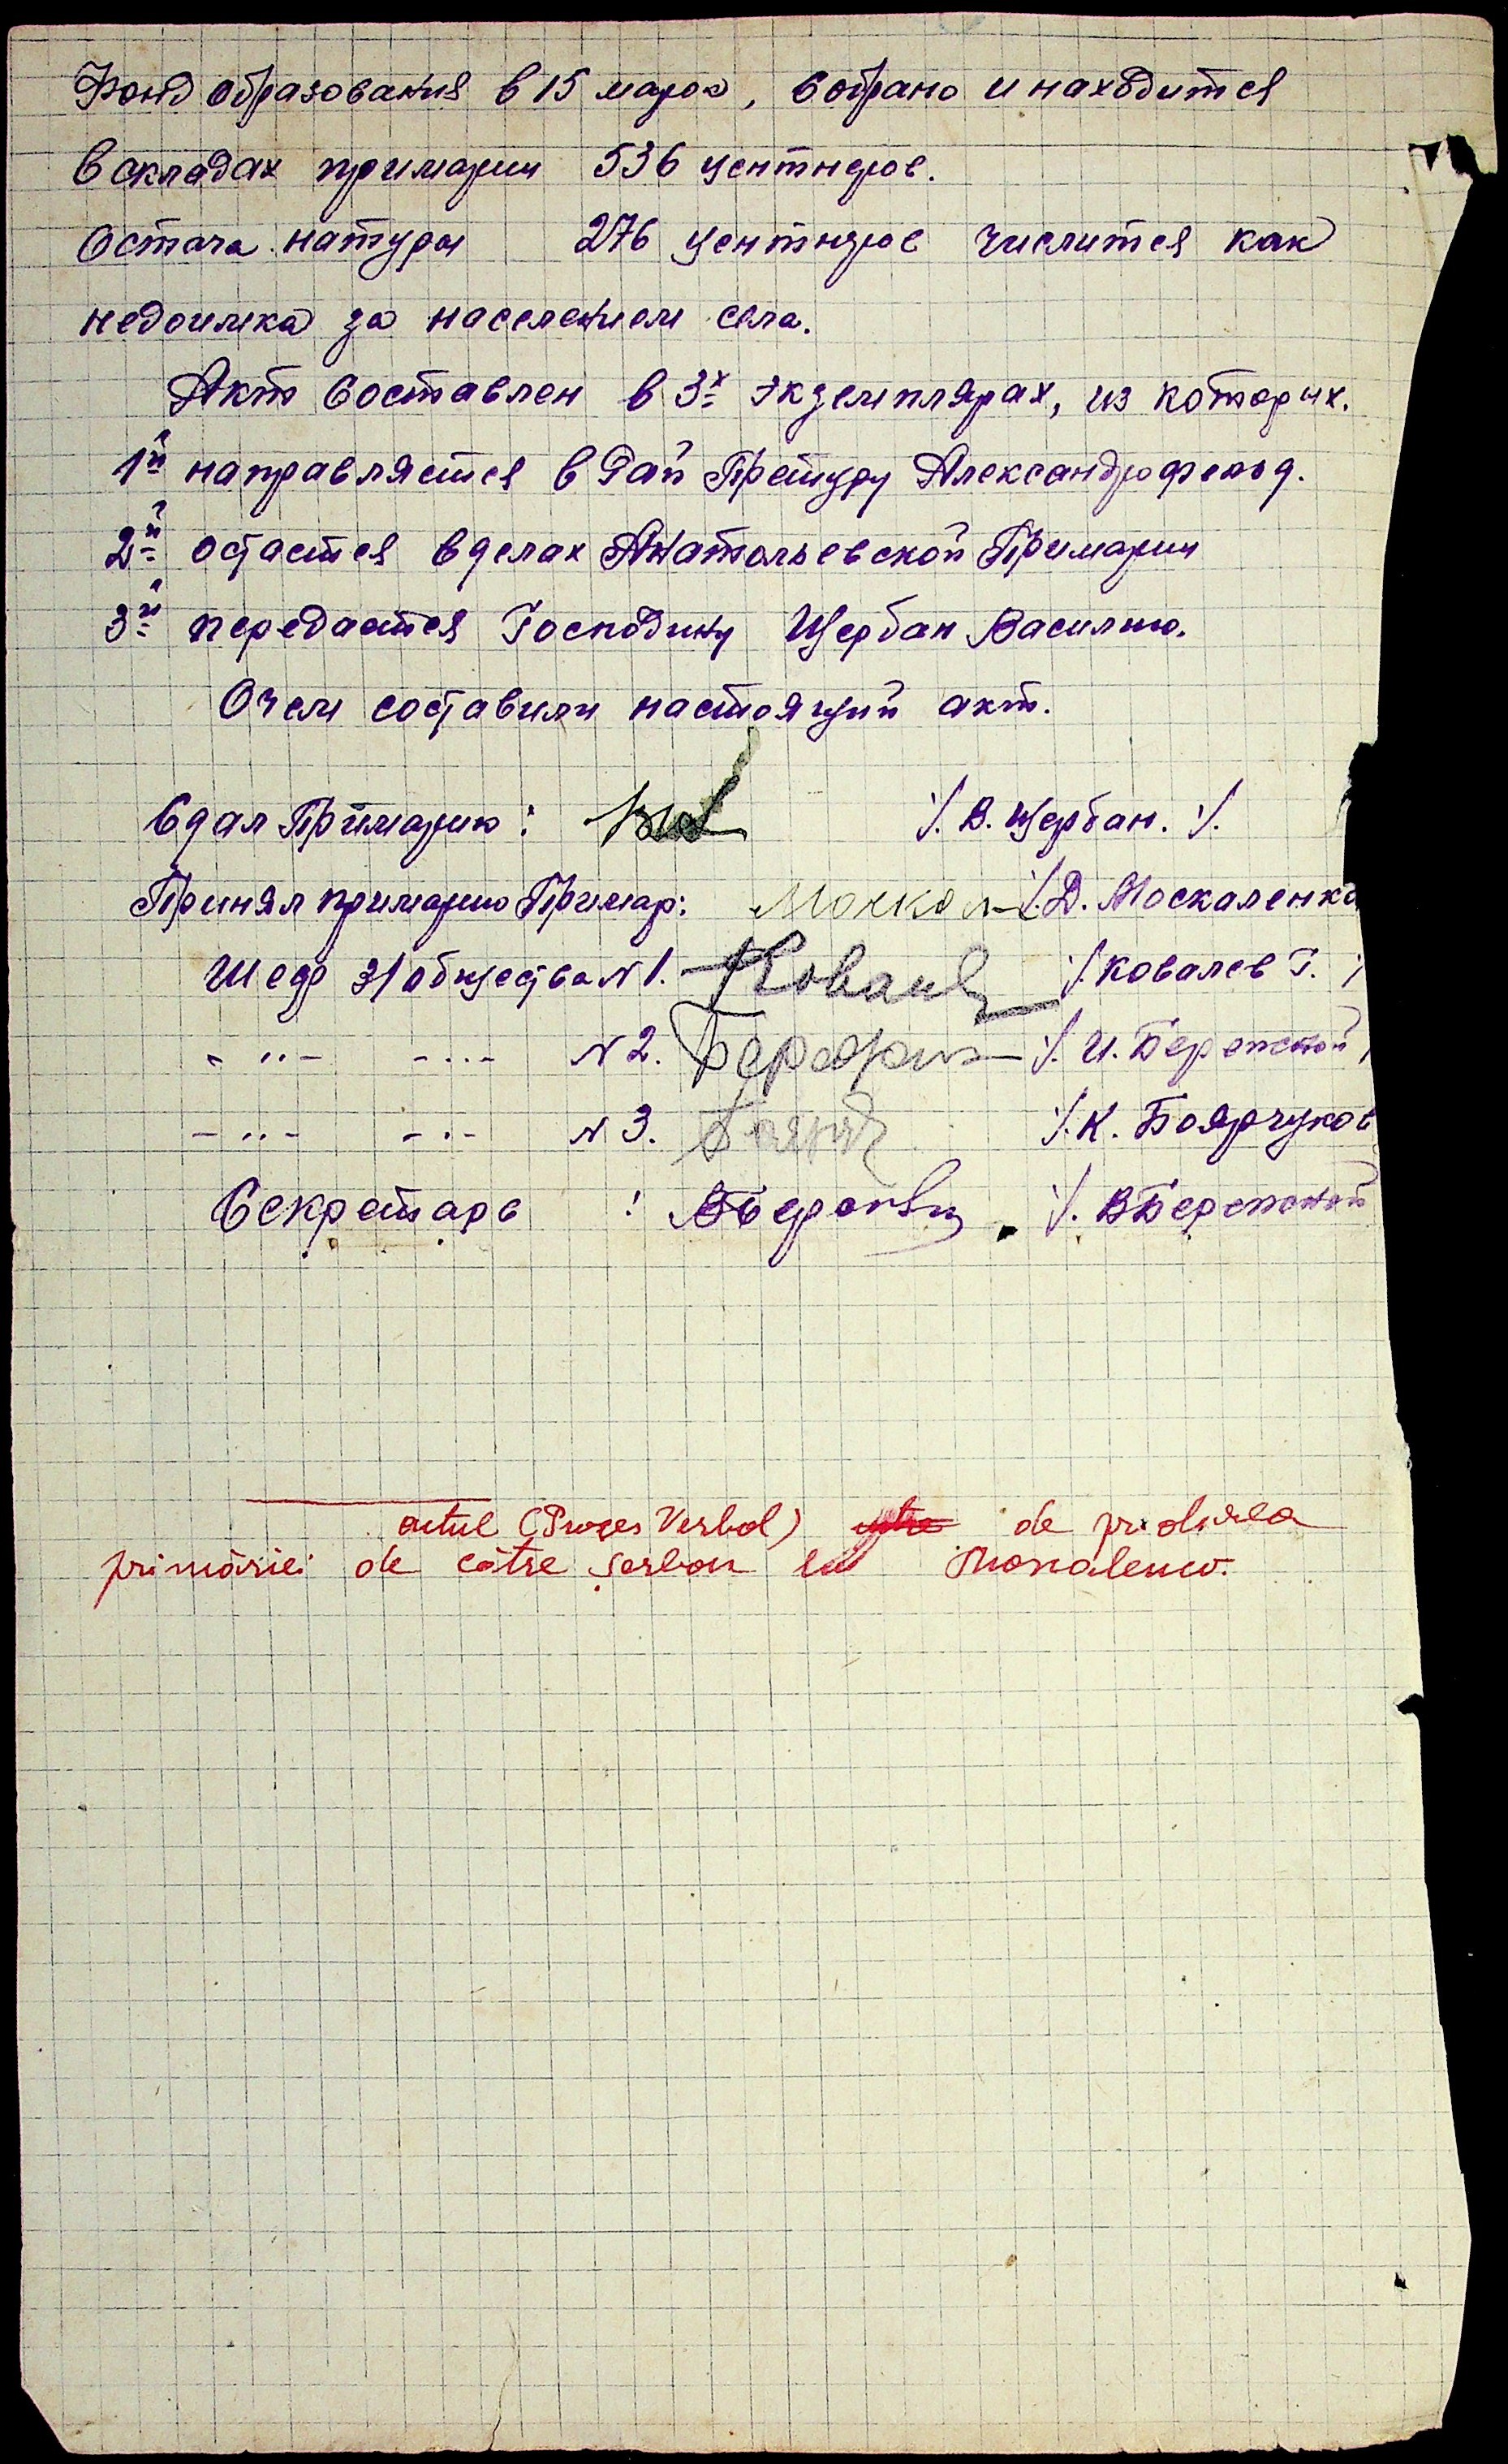 Фонд образования в 15 марок, собрано и находится
в складах примарии 536 центнеров.
Остача натуры 276 центнеров числится как
недоимка за населением села.
Акт составлен в 3х экземплярах, из которых.
1й направляется в Рай Претуру Александрофельд.
2й остается в делах Анатольевской Примарии
3й передается Господину Щербан Василию.
О чем составили настоящий акт.
Сдал Примарию: /. В. Щербан. /.
Принял примарию Примар: Москал /. Д. Москаленко
Шеф з/общества N 1. Ковалев /. Ковалев Г. /
- " - - " - N 2. Бережн /. И. Бережной /
- " - - " - N 3. Боярч /. К. Боярчуков
Секретарь : ВБережн /. ВБережной
actul (Proces Verbal) de predarea
primăriei de către Șerban lui Moscalenco.